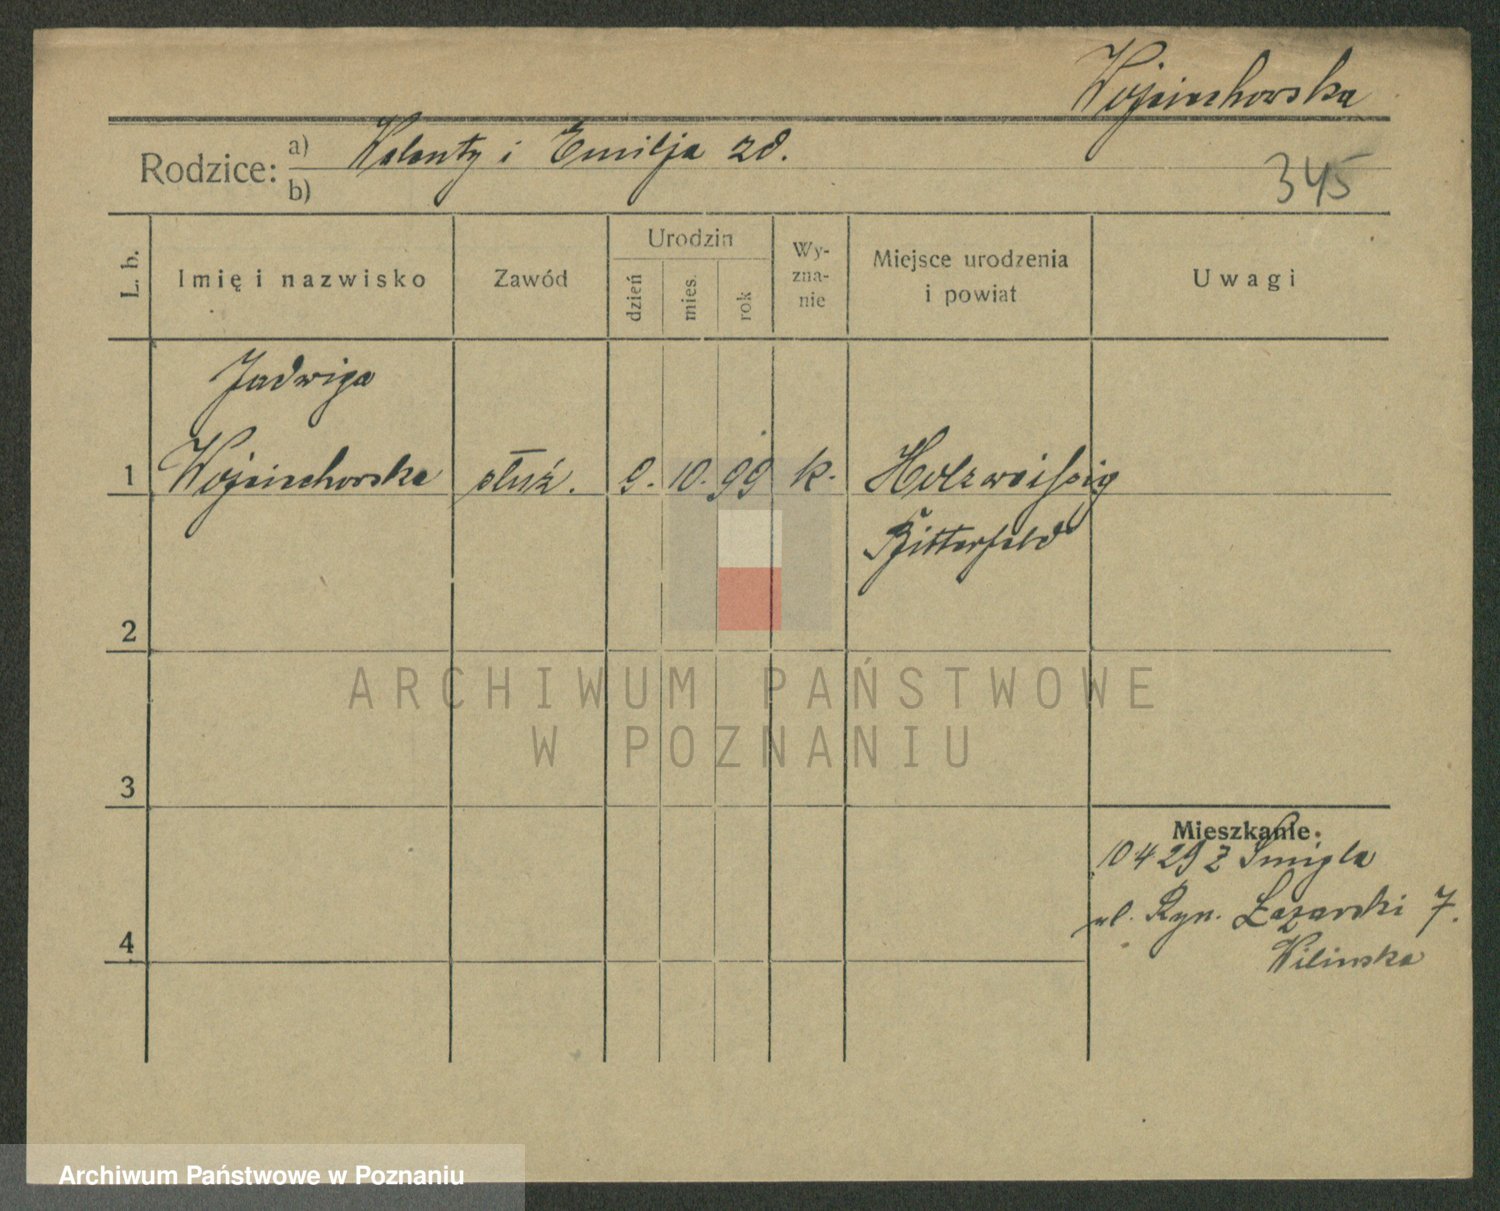 Wojciechowska
Rodzice: a) Walenty i Emilja zd.
b)
345
L. b.
Imię i nazwisko
Zawód
Urodzin
dzień
mies.
rok
Wy-
zna-
nie
Miejsce urodzenia
i powiat
Uwagi
Jadwiga
1 Wojciechowska służ. 9. 10. 99 k. Holzweissig
Bitterfeld
2
3
4
Mieszkanie.
10 4 29 z Śmigla
ul. Ryn. Łazarski 7.
Wilinska
ARCHIWUM PAŃSTWOWE
W POZNANIU
Archiwum Państwowe w Poznaniu